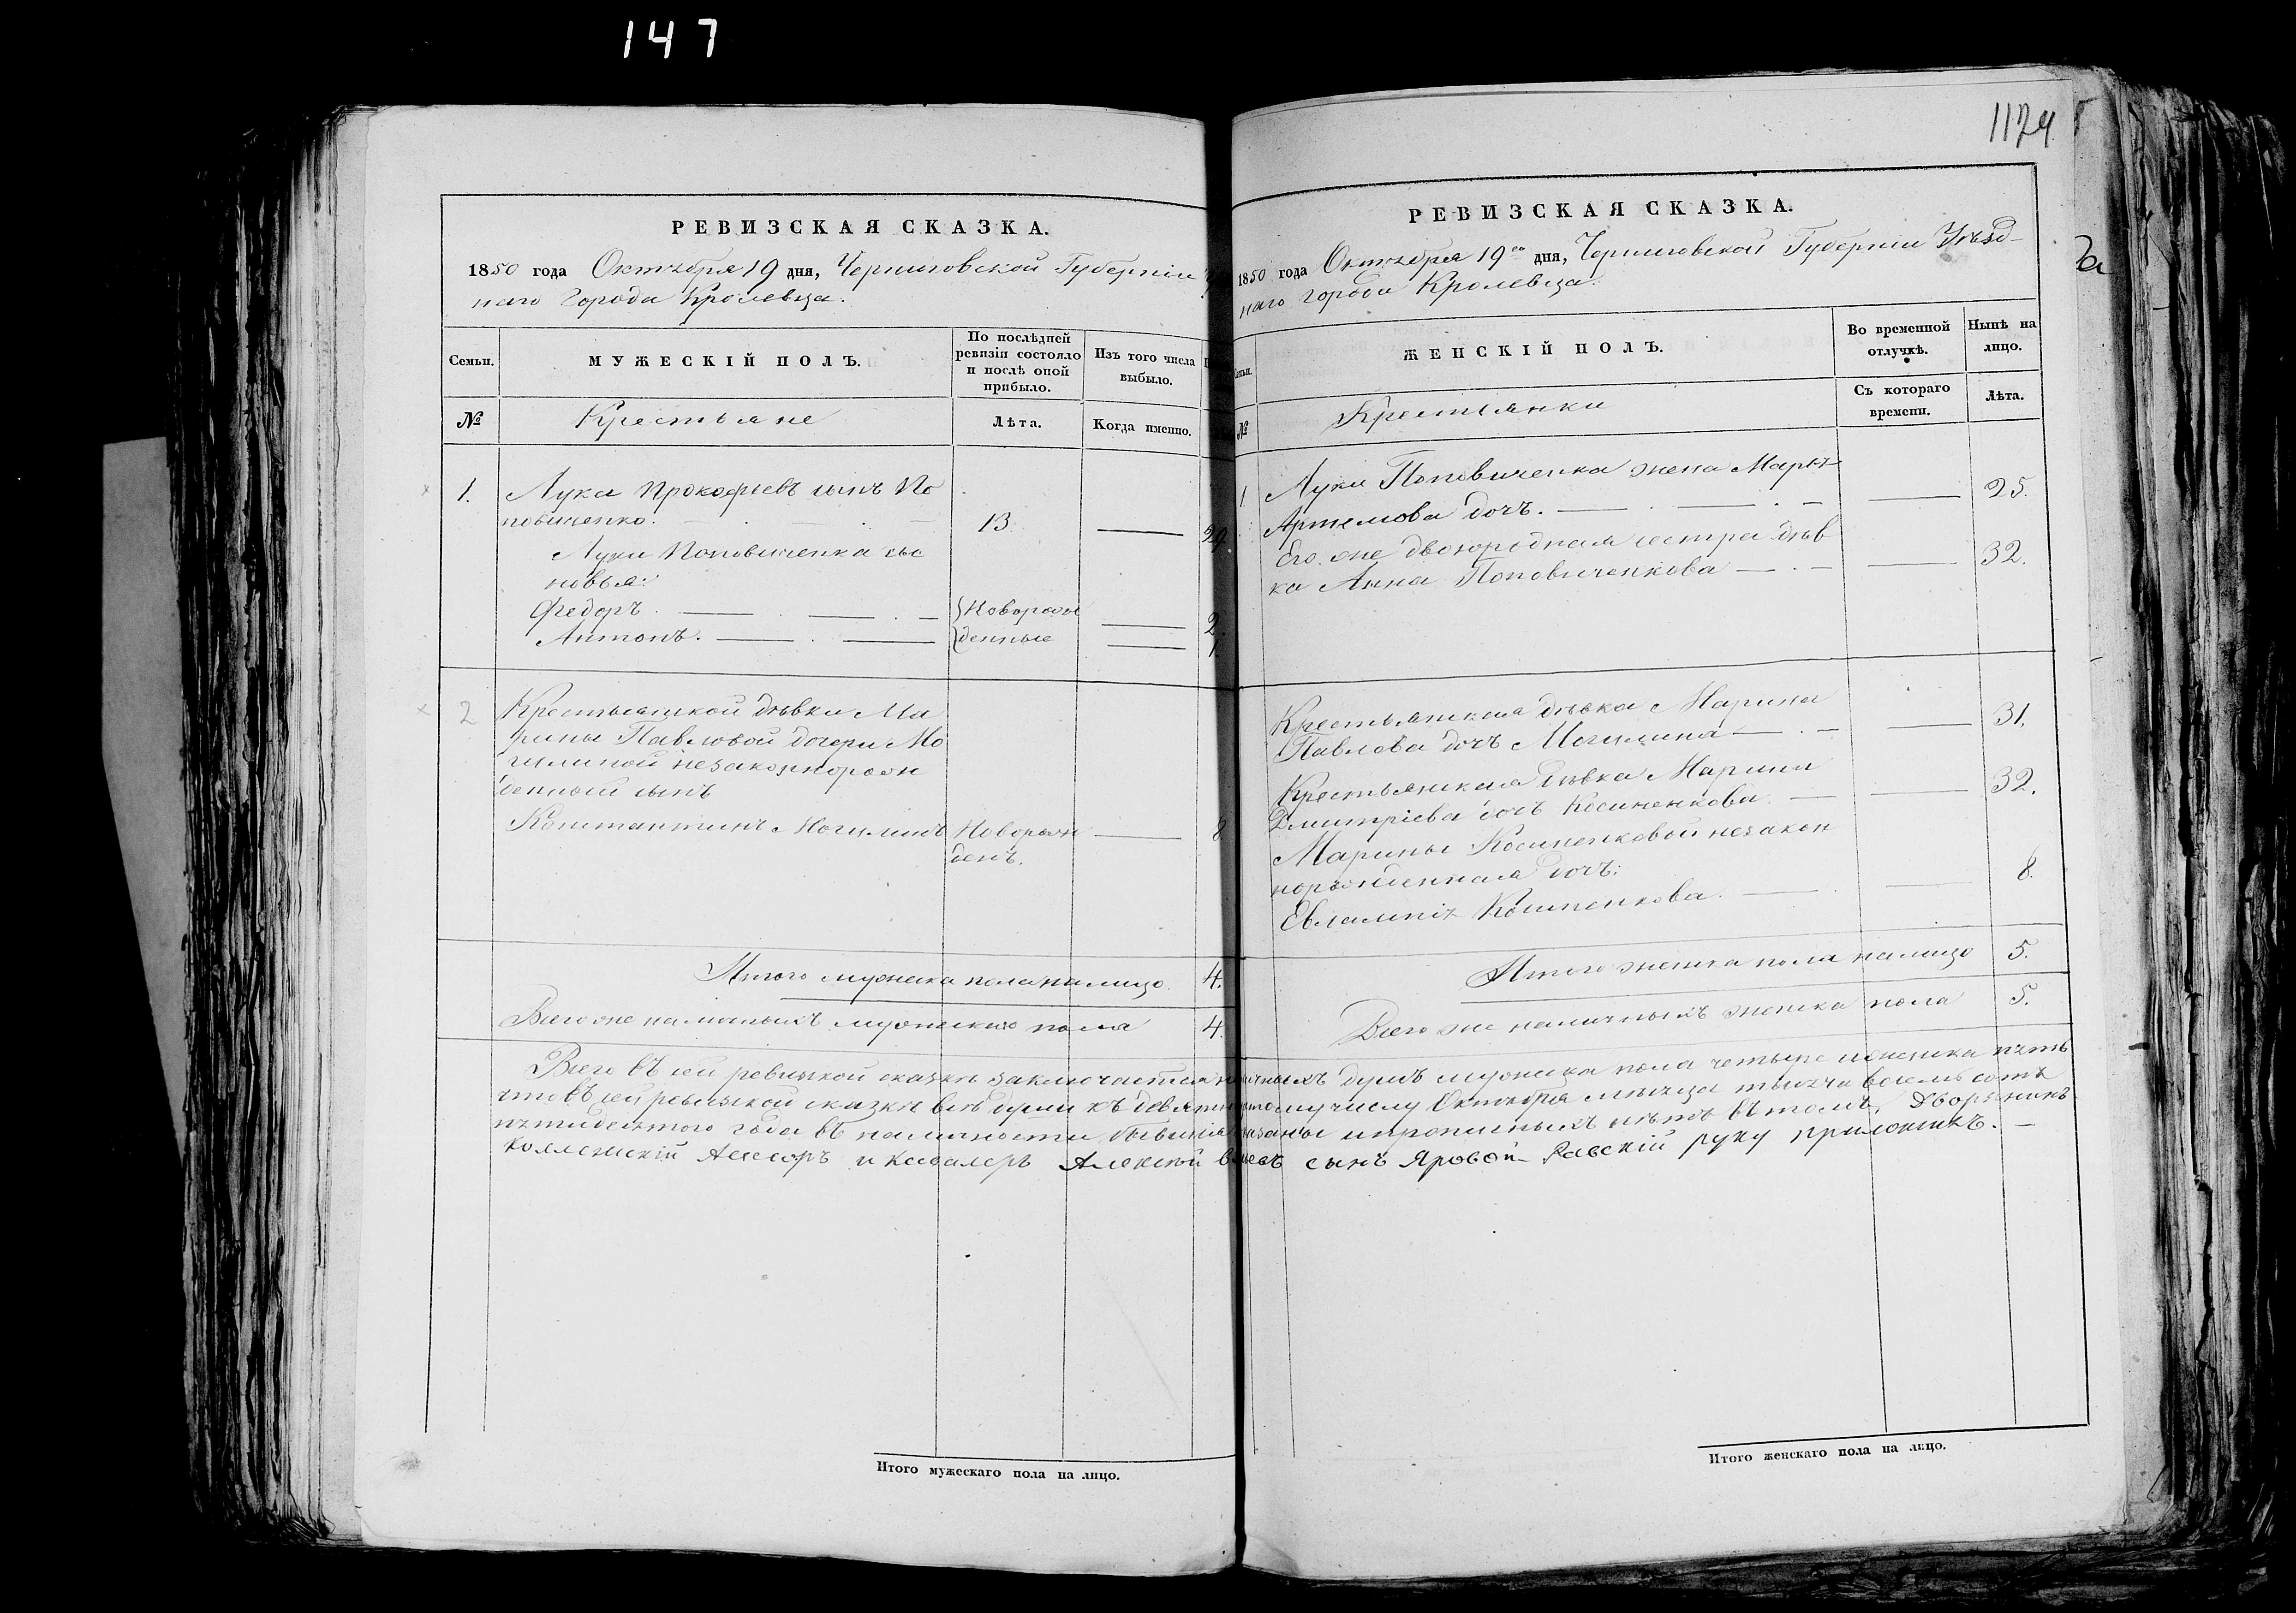 147
1124
РЕВИЗСКАЯ СКАЗКА.
1850 года Октября 19 дня, Черниговской Губерніи
наго Города Кролевца.
Семьи.
МУЖЕСКІЙ ПОЛЪ.
По послѣдней
ревизіи состояло
и послѣ оной
прибыло.
Изъ того числа
выбыло.
№
Крестьяне
Лѣта.
Когда именно.
1. Лука Прокофьевъ сынъ По
повиченко. 13. 29.
Луки Поповиченка сы
новья:
Федоръ. Новорож 2.
Антонъ. денные 1.
2 Крестьянской дѣвки Ма
рины Павловой дочери Мо
гилиной незаконнорож
денный сынъ
Константинъ Могилинъ Новорож 8
денъ.
Итого мужеска пола на лицо. 4.
Всего же наличныхъ мужескаго пола 4.
РЕВИЗСКАЯ СКАЗКА.
1850 года Октября 19го дня, Черниговской Губерніи Уѣзд-
наго города Кролевца.
Семьи.
ЖЕНСКІЙ ПОЛЪ.
Во временной
отлучкѣ.
Нынѣ на
лицо.
№
Крестьянки
Съ котораго
времени.
Лѣта.
1 Луки Поповиченка жена Марья
Артемова дочь. 25.
Его же двоюродная сестра дѣв
ка Анна Поповиченкова 32.
Крестьянская дѣвка Марина
Павлова дочь Могилина 31.
Крестьянская дѣвка Марина
Дмитріева дочь Косиненкова 32.
Марины Косиненковой незакон
норожденная дочь:
Евлампія Косиненкова. 8.
Итого женска пола на лицо 5.
Всего же наличныхъ женска пола 5.
Всего въ сей ревизской сказкѣ заключается наличныхъ душъ мужеска пола четыре и женска пять
что въ сей ревизской сказкѣ всѣ души къ девятнадцатому числу Октября мѣсяца тысяча восемь сотъ
пятидесятого года въ наличности бывшія показаны и прописныхъ нѣтъ въ томъ, Дворянинъ
Коллежскій Асессоръ и Кавалеръ Алексѣй сынъ Яровой-Равскій руку приложилъ.
Итого мужескаго пола на лицо.
Итого женскаго пола на лицо.